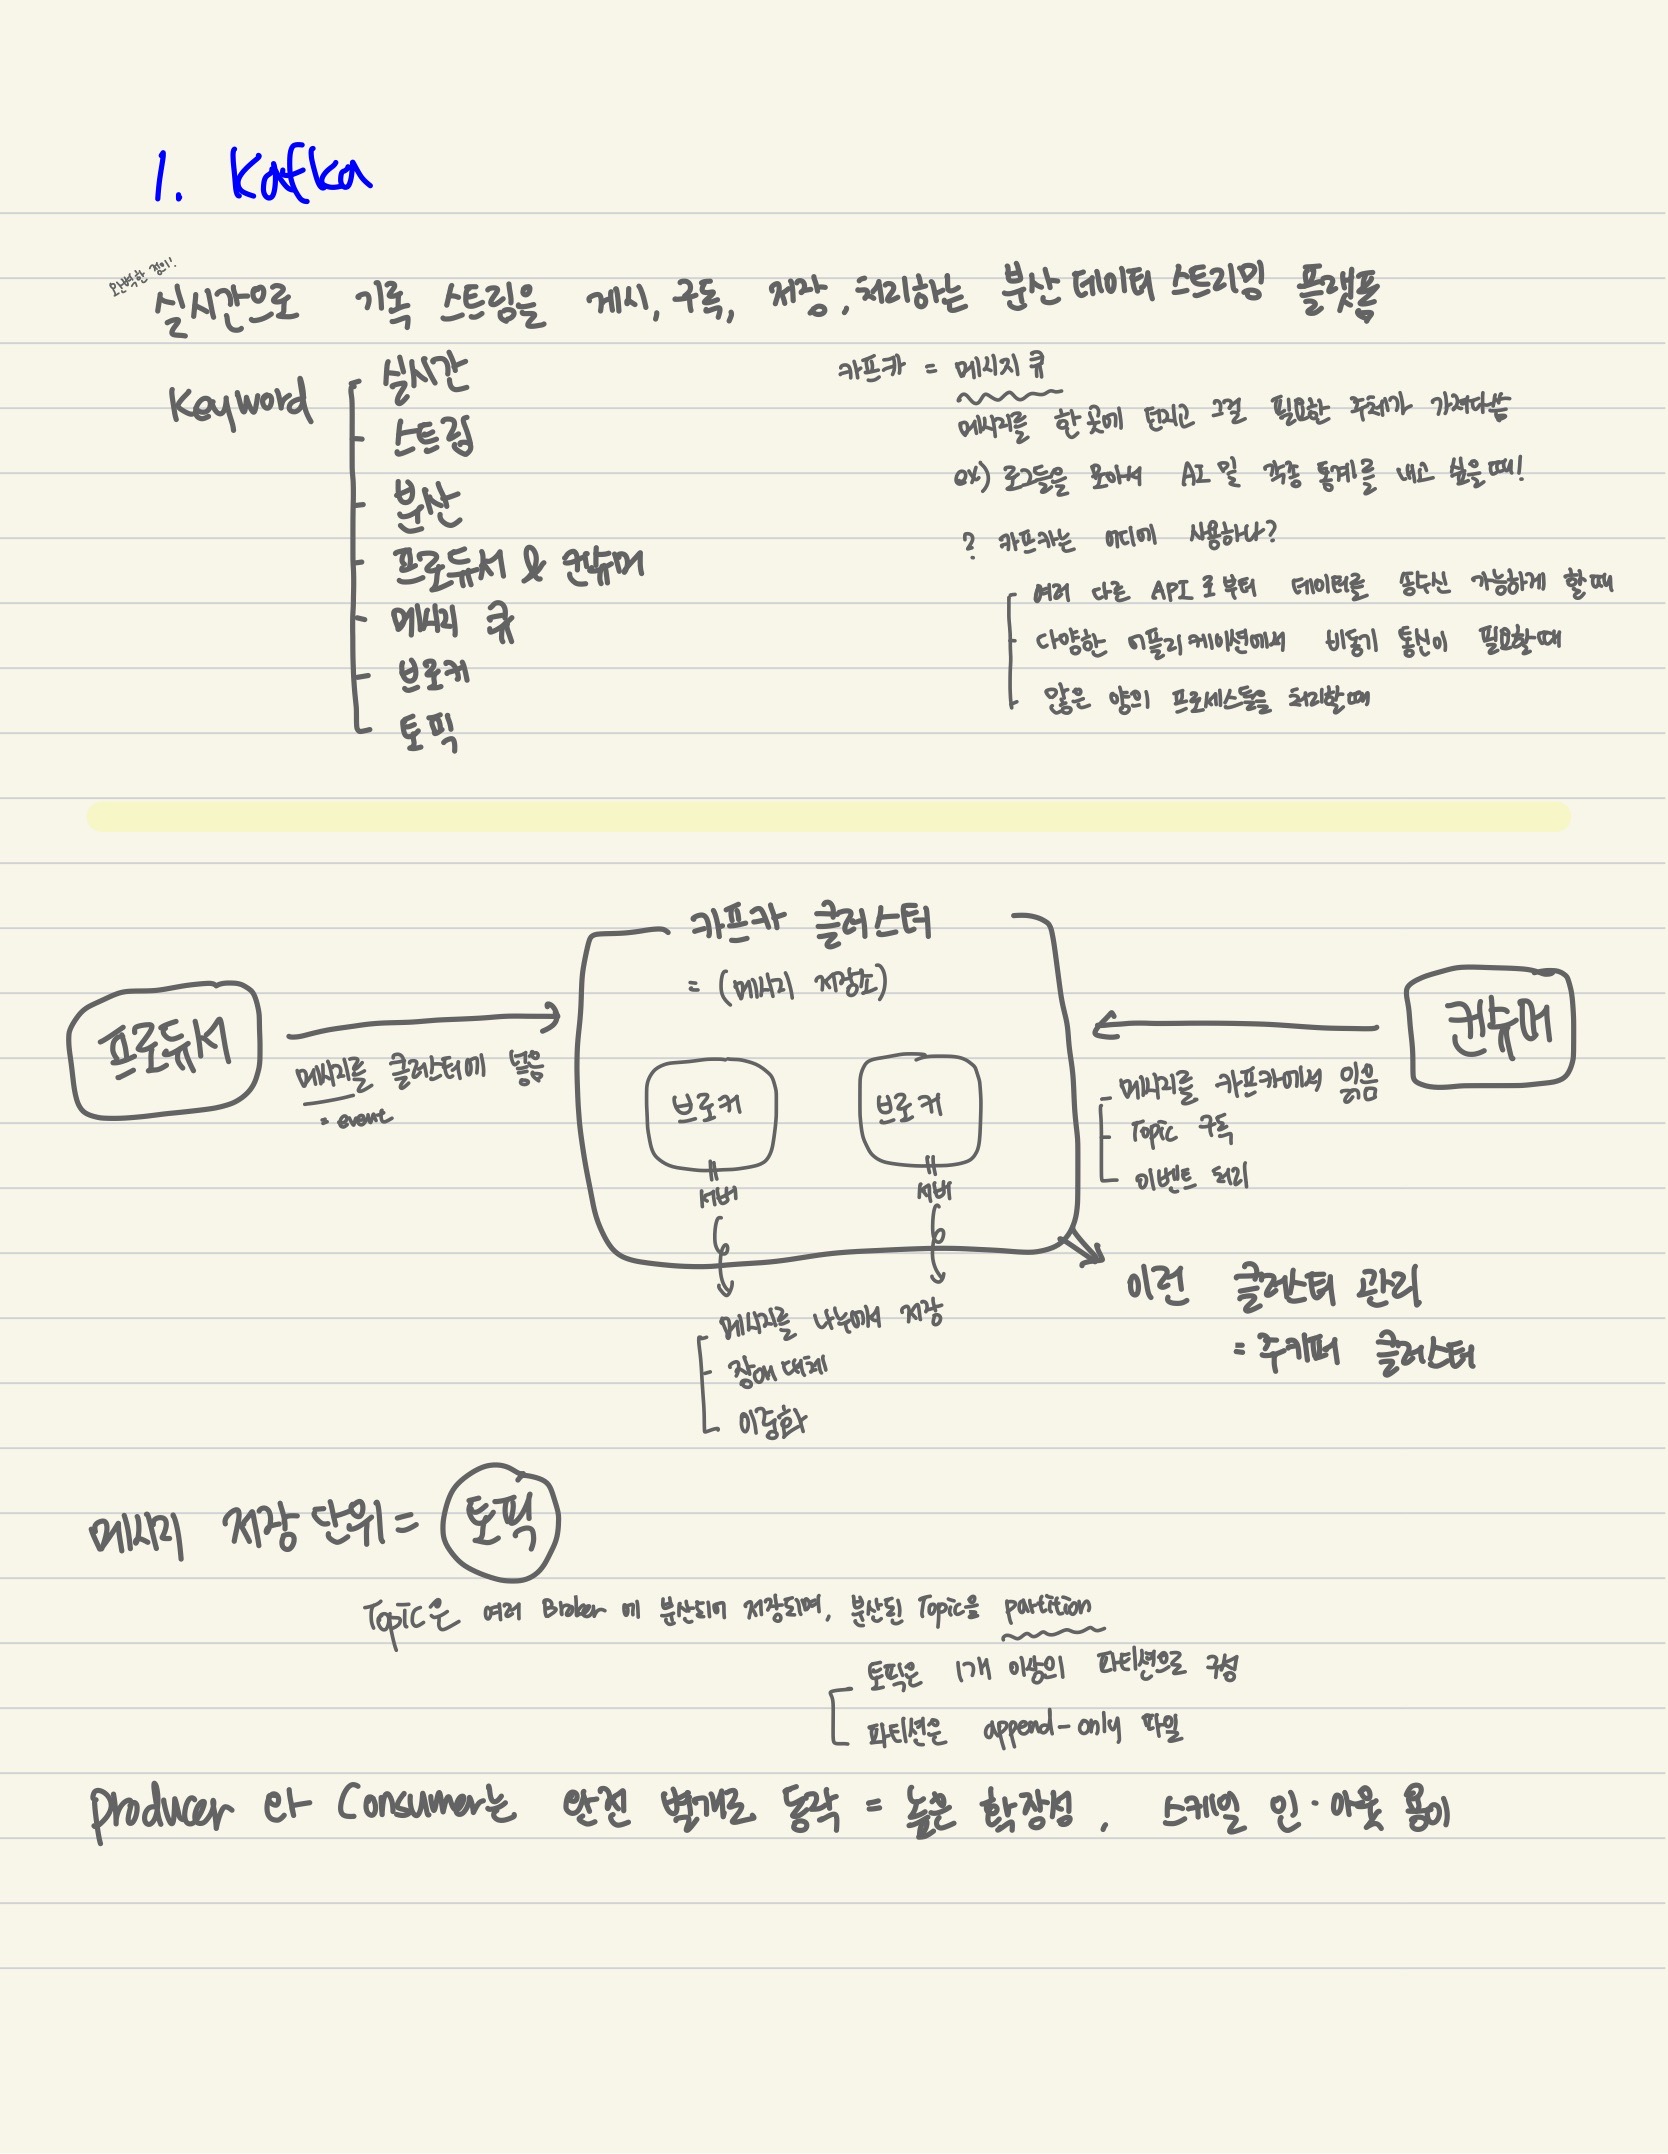 1. Kafka
완벽한 정의!
실시간으로 기록 스트림을 게시, 구독, 저장, 처리하는 분산 데이터 스트리밍 플랫폼
Keyword
실시간
스트림
분산
프로듀서 & 컨슈머
메시지 큐
브로커
토픽
카프카 = 메시지 큐
메시지를 한 곳에 던지고 그걸 필요한 주체가 가져다씀
ex) 로그들을 모아서 AI 및 각종 통계를 내고 싶을 때!
? 카프카는 어디에 사용하나?
여러 다른 API로부터 데이터를 송수신 가능하게 할 때
다양한 어플리케이션에서 비동기 통신이 필요할 때
많은 양의 프로세스들을 처리할 때
카프카 클러스터
= (메시지 저장소)
프로듀서
메시지를 클러스터에 넣음
= event
브로커
브로커
서버
서버
컨슈머
메시지를 카프카에서 읽음
Topic 구독
이벤트 처리
메시지를 나누어서 저장
장애 대체
이중화
이런 클러스터 관리
= 주키퍼 클러스터
메시지 저장 단위 = 토픽
Topic은 여러 Broker에 분산되어 저장되며, 분산된 Topic을 partition
토픽은 1개 이상의 파티션으로 구성
파티션은 append-only 파일
Producer 와 Consumer는 완전 별개로 동작 = 높은 확장성, 스케일 인·아웃 용이